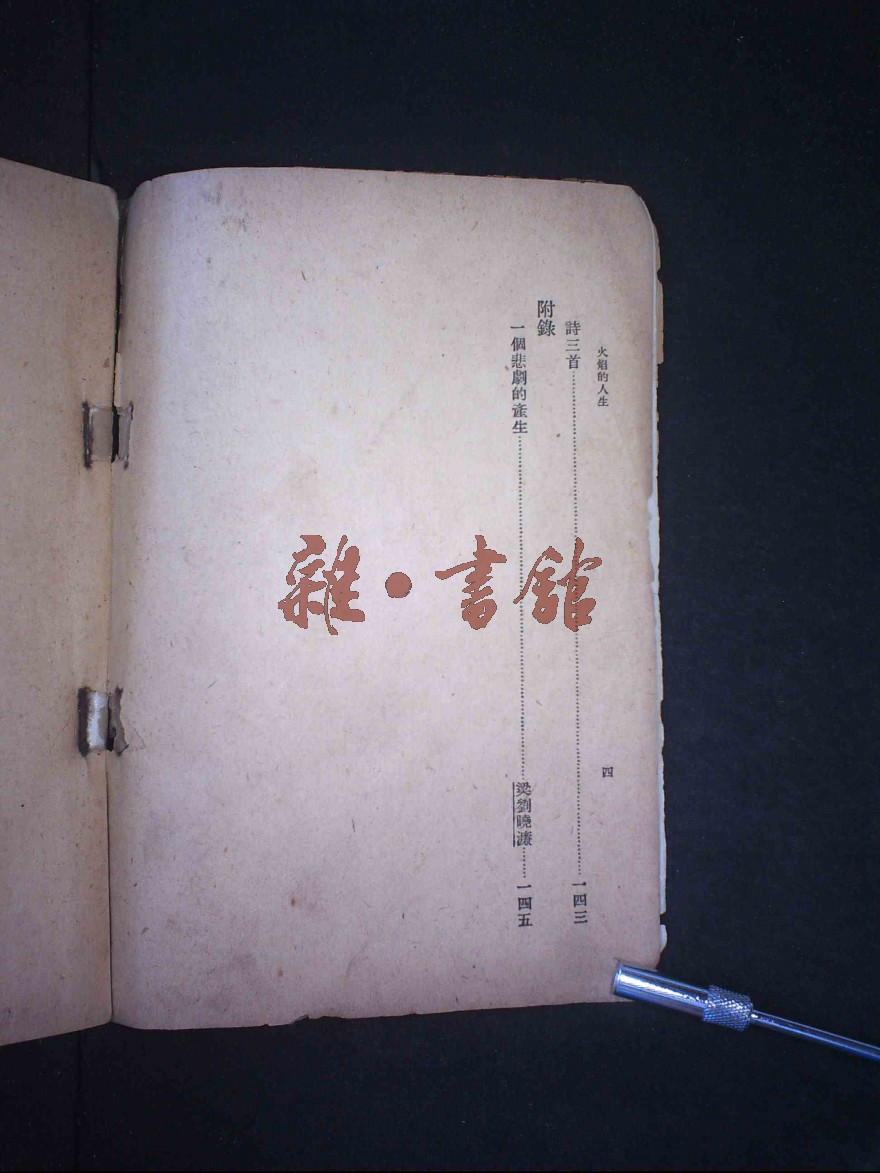 火焰的人生
四
詩三首……一四三
附錄
一個悲劇的產生……梁劉曉瀛……一四五
雜·書館